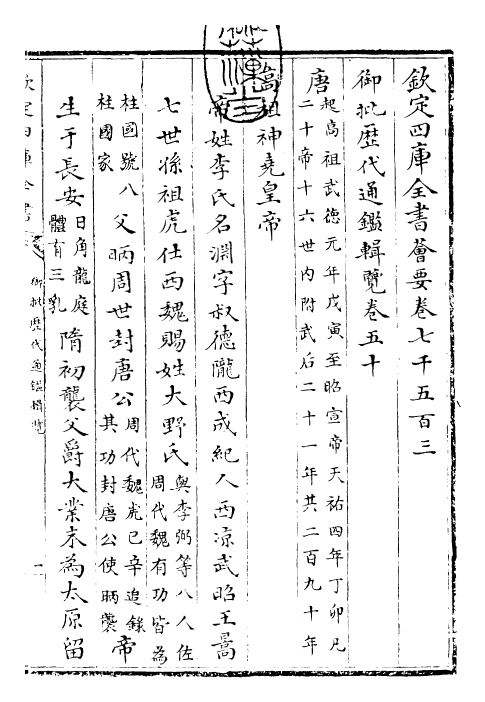 欽定四庫全書薈要卷七千五百三
御批歷代通鑑輯覽卷五十
唐
起高祖武德元年戊寅至昭宣帝天祐四年丁卯凡
二十帝十六世内附武后二十一年共二百九十年
高祖神堯皇帝
帝姓李氏名淵字叔德隴西成紀人西涼武昭王暠
七世孫祖虎仕西魏賜姓大野氏
與李弼等八人佐
周代魏有功皆為
柱國號八
柱國家
父昞周世封唐公
周代魏虎已卒追錄
其功封唐公使昞襲
帝
生于長安
日角龍庭
體有三乳
隋初襲父爵大業末為太原留
欽定四庫全書
御批歷代通鑑輯覽
一